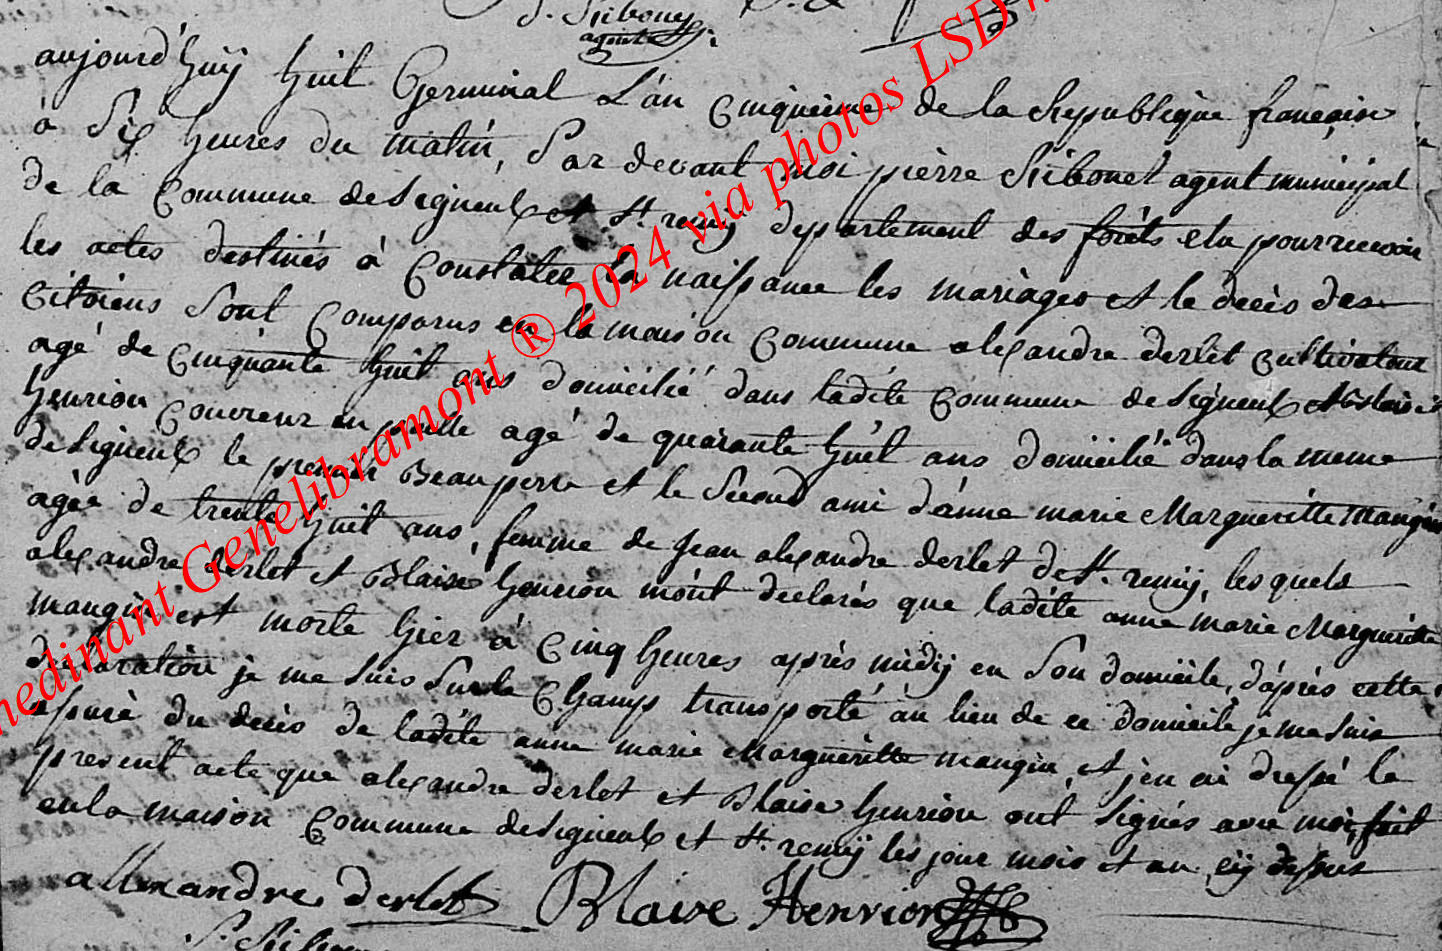 P. Ribonet
agent
aujourd'huÿ huit Germinal L'an Cinquième de la République françaisse
à Six heures du matin, Par devant moi pierre Ribonet agent municipal
de la Commune de Signeulx et St. remÿ departement des forêts elu pour recevoir
les actes destinés à Constater la naissance les mariages et le decès des
Citoiens Sont Comparus en la maison Commune alexandre derlet Cultivateur
agé de Cinquante huit ans domicilié dans ladite Commune de Signeulx et blaise
henrion Couvreur en paille agé de quarante huit ans domicilié dans la meme
de Signeulx le premier Beaupere et le Second ami d'anne marie Margueritte mangin
agée de trente huit ans, femme de Jean alexandre derlet de St. remÿ, lesquels
alexandre derlet et Blaise henrion m'ont declarés que ladite anne marie Margueritte
mangin est morte hier à Cinq heures après midÿ en Son domicile, d'après cette
declaration je me Suis Sur le Champs transporté au lieu de ce domicile je me Suis
assuré du decès de ladite anne marie Margueritte mangin, et j'en ai dressé le
present acte que alexandre derlet et Blaise henrion ont Signés avec moi, fait
en la maison Commune de Signeulx et St. remÿ les jour mois et an cÿ dessus
allexandre derlet Blaise Henrion
P. Ribonet
nedinant Genelibramont ® 2024 via photos LSD